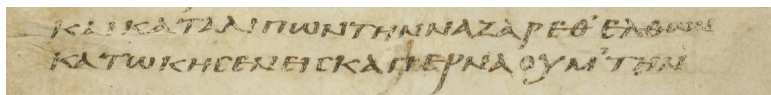 ΚΑΙΚΑΤΑΛΙΠΩΝΤΗΝΝΑΖΑΡΕΘ᾽ΕΛΘΩΝ
ΚΑΤΩΚΗϹΕΝΕΙϹΚΑΠΕΡΝΑΟΥΜ᾽ΤΗΝ